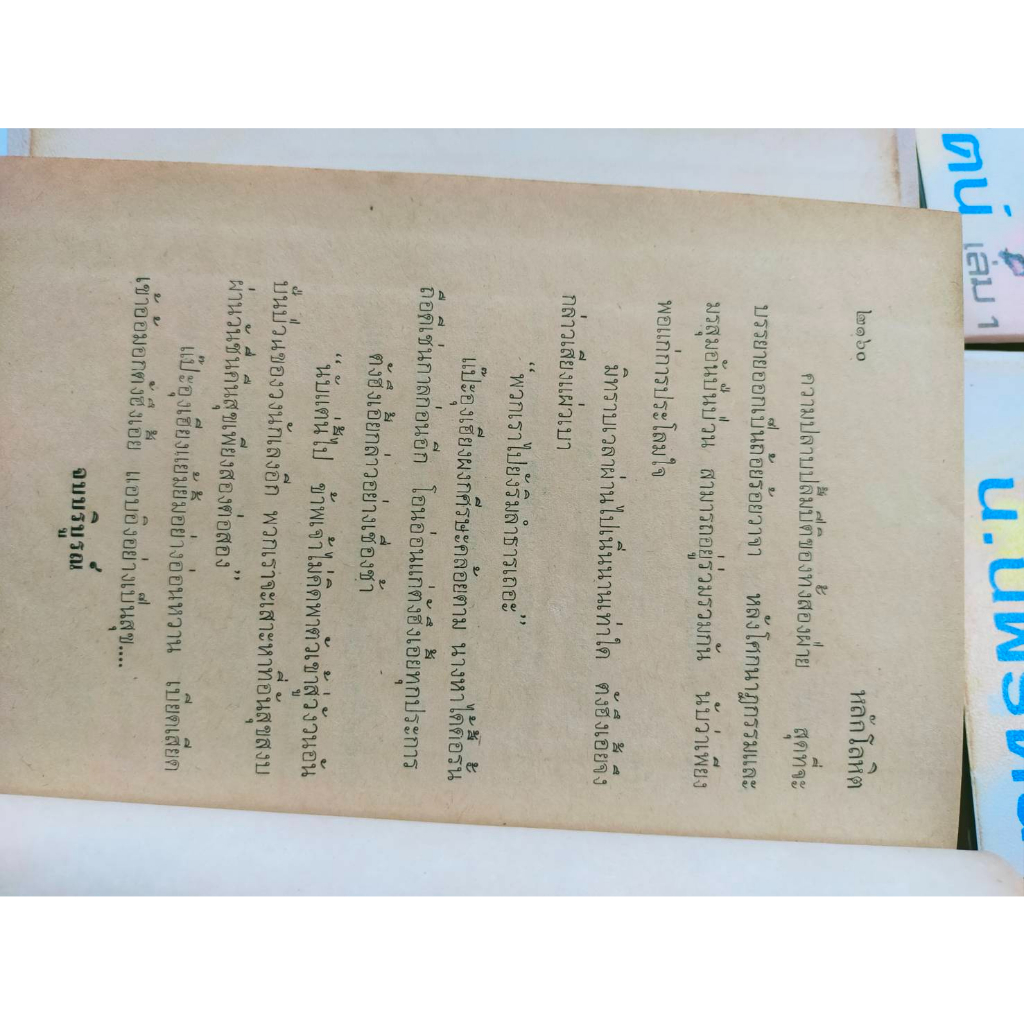 ๒๑๖๐ หลักโลหิต
ความปลาบปลื้มปิติของทั้งสองฝ่าย สุดที่จะ
บรรยายออกเป็นถ้อยร้อยวาจา หลังโศกนาฏกรรมและ
มรสุมอันปั่นป่วน สามารถอยู่ร่วมรวมกัน นับว่าเพียง
พอแก่การประโลมใจ
มิทราบเวลาผ่านไปเนิ่นนานเท่าใด ต้งฮึงเอี้ยจึง
กล่าวเสียงแผ่วเบา
“พวกเราไปยังริมลำธารเถอะ”
แป๊ะอุงเฮียงผงกศีรษะคล้อยตาม นางหาได้ดื้อรั้น
ถือดีเช่นกาลก่อนอีก โอนอ่อนแก่ต้งฮึงเอี้ยทุกประการ
ต้งฮึงเอี้ยกล่าวอย่างเชื่องช้า
“นับแต่นี้ไป ข้าพเจ้าไม่คิดพาตัวเข้าสู่วังวนอัน
ปั่นป่วนของวงนักเลงอีก พวกเราจะเสาะหาที่อันสุขสงบ
ผ่านวันชื่นคืนสุขเพียงสองต่อสอง”
แป๊ะอุงเฮียงแย้มยิ้มอย่างอ่อนหวาน เบียดเสียด
เข้าอ้อมอกต้งฮึงเอี้ย แอบอิงอย่างเป็นสุข....
จบบริบูรณ์
เล่ม 1
น.นพรัตน์